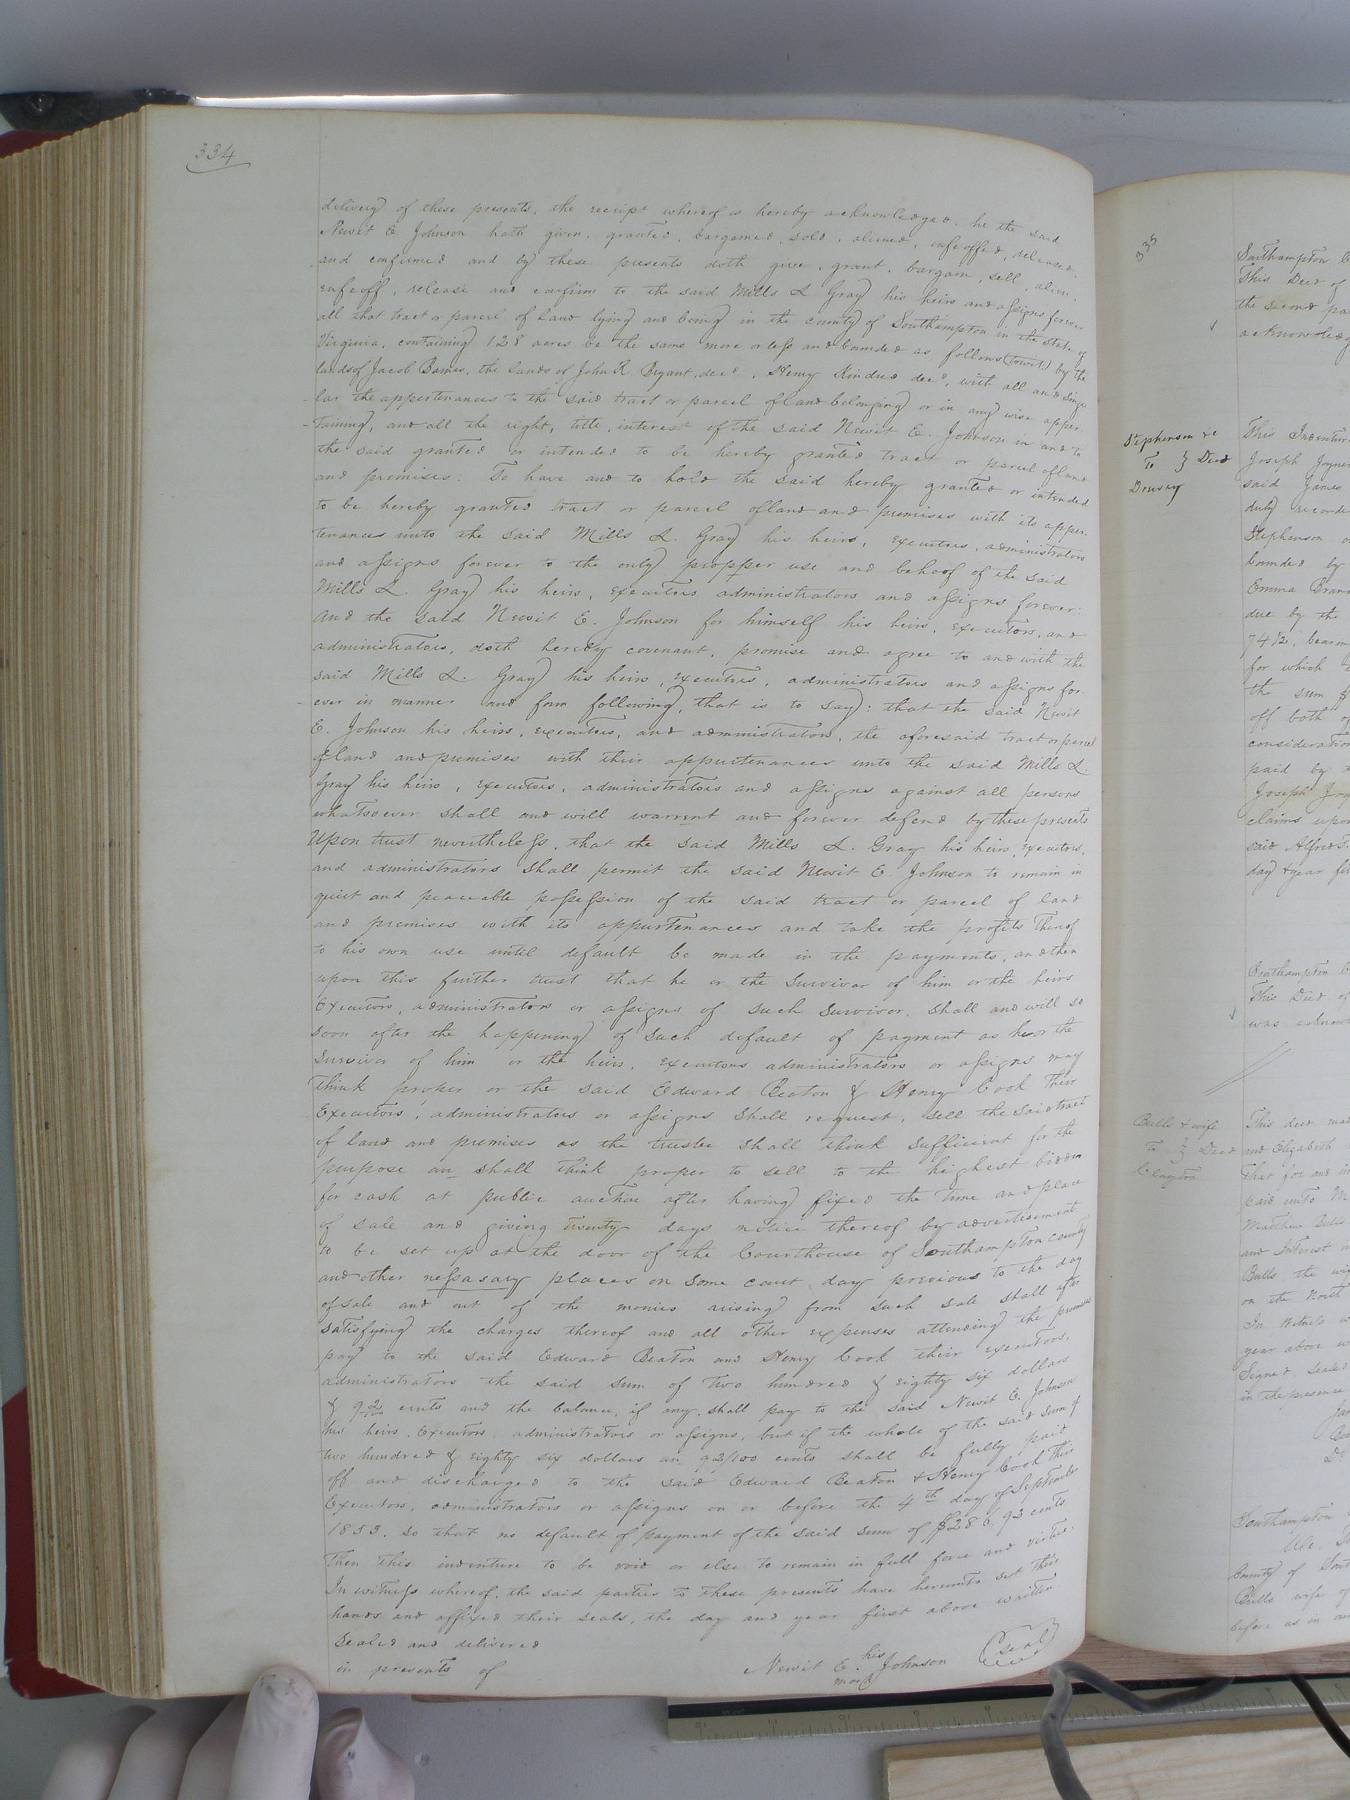 334
delivery of these presents, the receipt whereof is hereby acknowledged, he the said
Newit E Johnson hath given, granted, bargained, sold, aliened, enfeoffed, released,
and confirmed and by these presents doth give, grant, bargain, sell, alien,
enfeoff, release and confirm to the said Mills L Gray his heirs and assigns forever
all that tract or parcel of land lying and being in the county of Southampton in the State of
Virginia, containing 128 acres be the same more or less and bounded as follows (towit) by the
lands of Jacob Barnes, the lands of John R. Bryant, decd, Henry Kindred decd, with all and singu
lar the appertenances to the said tract or parcel of land belonging or in any wise apper
-taining, and all the right, title, interest of the said Newit E. Johnson in and to
the said granted or intended to be hereby granted tract or parcel of land
and premises. To have and to hold the said hereby granted or intended
to be hereby granted tract or parcel of land and premises with its apper-
tenances unto the said Mills L. Gray his heirs, executors, administrators
and assigns forever to the only propper use and behoof of the said
Mills L. Gray his heirs, executors administrators and assigns forever:
and the said Newit E. Johnson for himself his heirs, executors, and
administrators, doth hereby covenant, promise and agree to and with the
said Mills L. Gray his heirs, executors, administrators and assigns for
-ever in manner and form following, that is to say: that the said Newit
E. Johnson his heirs, executors, and administrators, the aforesaid tract or parcel
of land and premises with their appurtenances unto the said Mills L.
Gray his heirs, executors, administrators and assigns against all persons
whatsoever shall and will warrent and forever defend by these presents
Upon trust nevertheless, that the said Mills L. Gray his heirs, executors,
and administrators shall permit the said Newit E. Johnson to remain in
quiet and peaceable possession of the said tract or parcel of land
and premises with its appurtenances and take the profits thereof
to his own use until default be made in the payments, and then
upon this further trust that he or the Survivor of him or the heirs
Executors, administrators or assigns of such Survivor, shall and will so
soon after the happening of such default of payment as he or the
survivor of him or the heirs, executors administrators or assigns may
think proper or the said Edward Beaton & Henry Cook their
Executors, administrators or assigns shall request, sell the said tract
of land and premises as the trustee shall think sufficient for the
purpose an shall think proper to sell to the highest bidder
for cash at public auction after having fixed the time and place
of sale and giving twenty days notice thereof by advertisement
to be set up at the door of the Courthouse of Southampton county
and other nessasary places on some court day previous to the day
of sale and out of the monies arising from such sale shall after
satisfying the charges thereof and all other expenses attending the premises
pay to the said Edward Beaton and Henry Cook their executors,
administrators the said sum of two hundred & eighty six dollars
& 92/100 cents and the balance, if any, shall pay to the said Newit E. Johnson
his heirs, Executors, administrators or assigns, but if the whole of the said sum of
two hundred & eighty six dollars an 92/100 cents shall be fully paid
off and discharged to the said Edward Beaton & Henry Cook their
Executors, administrators or assigns on or before the 4th day of September
1853, so that no default of payment of the said sum of $286.92 cents
Then this indenture to be void or else to remain in full force and virtue.
In witness whereof, the said parties to these presents have hereunto set their
hands and affixed their seals, the day and year first above written
Sealed and delivered
in presents of
Newit E. his Johnson (seal)
mark
335
Southampton
This Deed of
the second pa
acknowledg
Stephenson &c
To } Deed
Drury
This Indentur
Joseph Joyner
said James
duly recorde
Stephenson
bounded by
Emma
due by the
for which
the sum
off both of
consideration
paid by
Joseph
claims upon
said Alfred
day & year
Southampton
This Deed of
was
Butts & wife
To } Deed
Clayton
This deed ma
and Elizabeth
That for and in
paid unto
Matthew Butts
and Interest in
Butts the wi
on the North
In Witness w
year above w
Signed Sealed
in the presence
Southampton
County of
Butts wife of
before as in